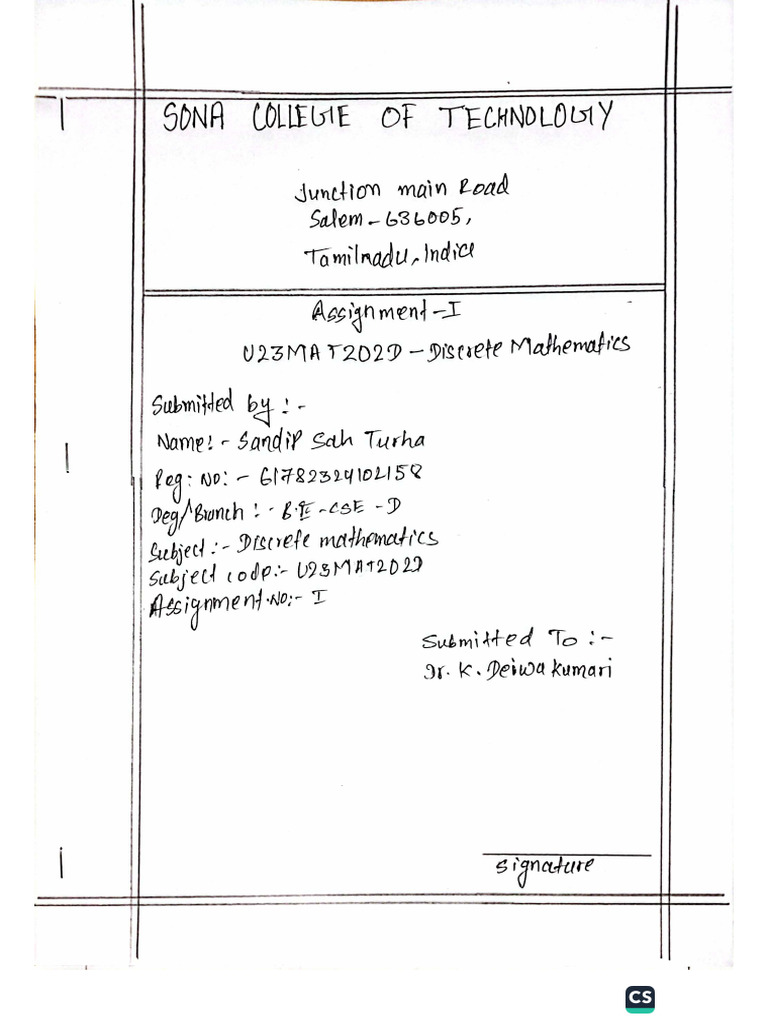 SONA COLLEGE OF TECHNOLOGY
Junction main Road
Salem - 636005,
Tamilnadu, India
Assignment - I
U23MAT202D - Discrete Mathematics
Submitted by :-
Name:- Sandip Sah Turha
Reg: No:- 61782324102158
Deg/Branch :- B.E - CSE - D
Subject :- Discrete mathematics
Subject code:- U23MAT202D
Assignment.No:- I
Submitted To :-
Dr. K. Deiwakumari
Signature
CS